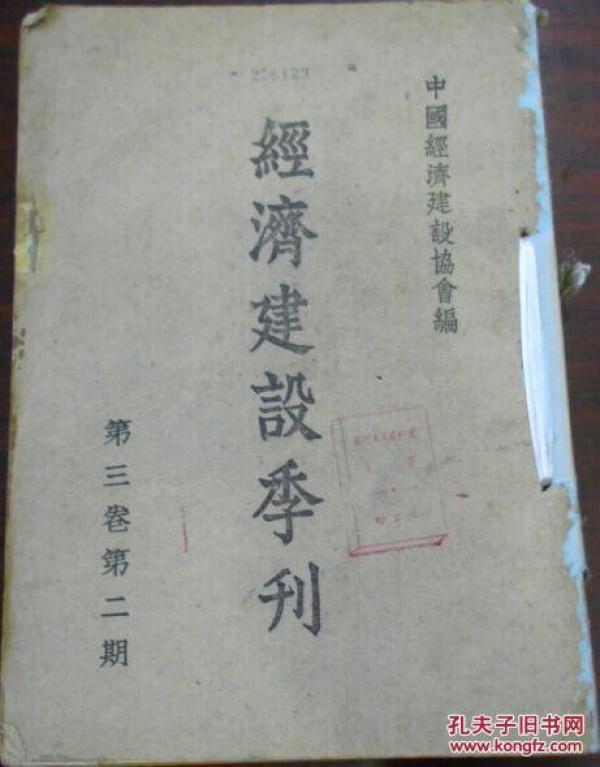 256123
中國經濟建設協會編
經濟建設季刊
第三卷第二期
孔夫子旧书网
www.kongfz.com